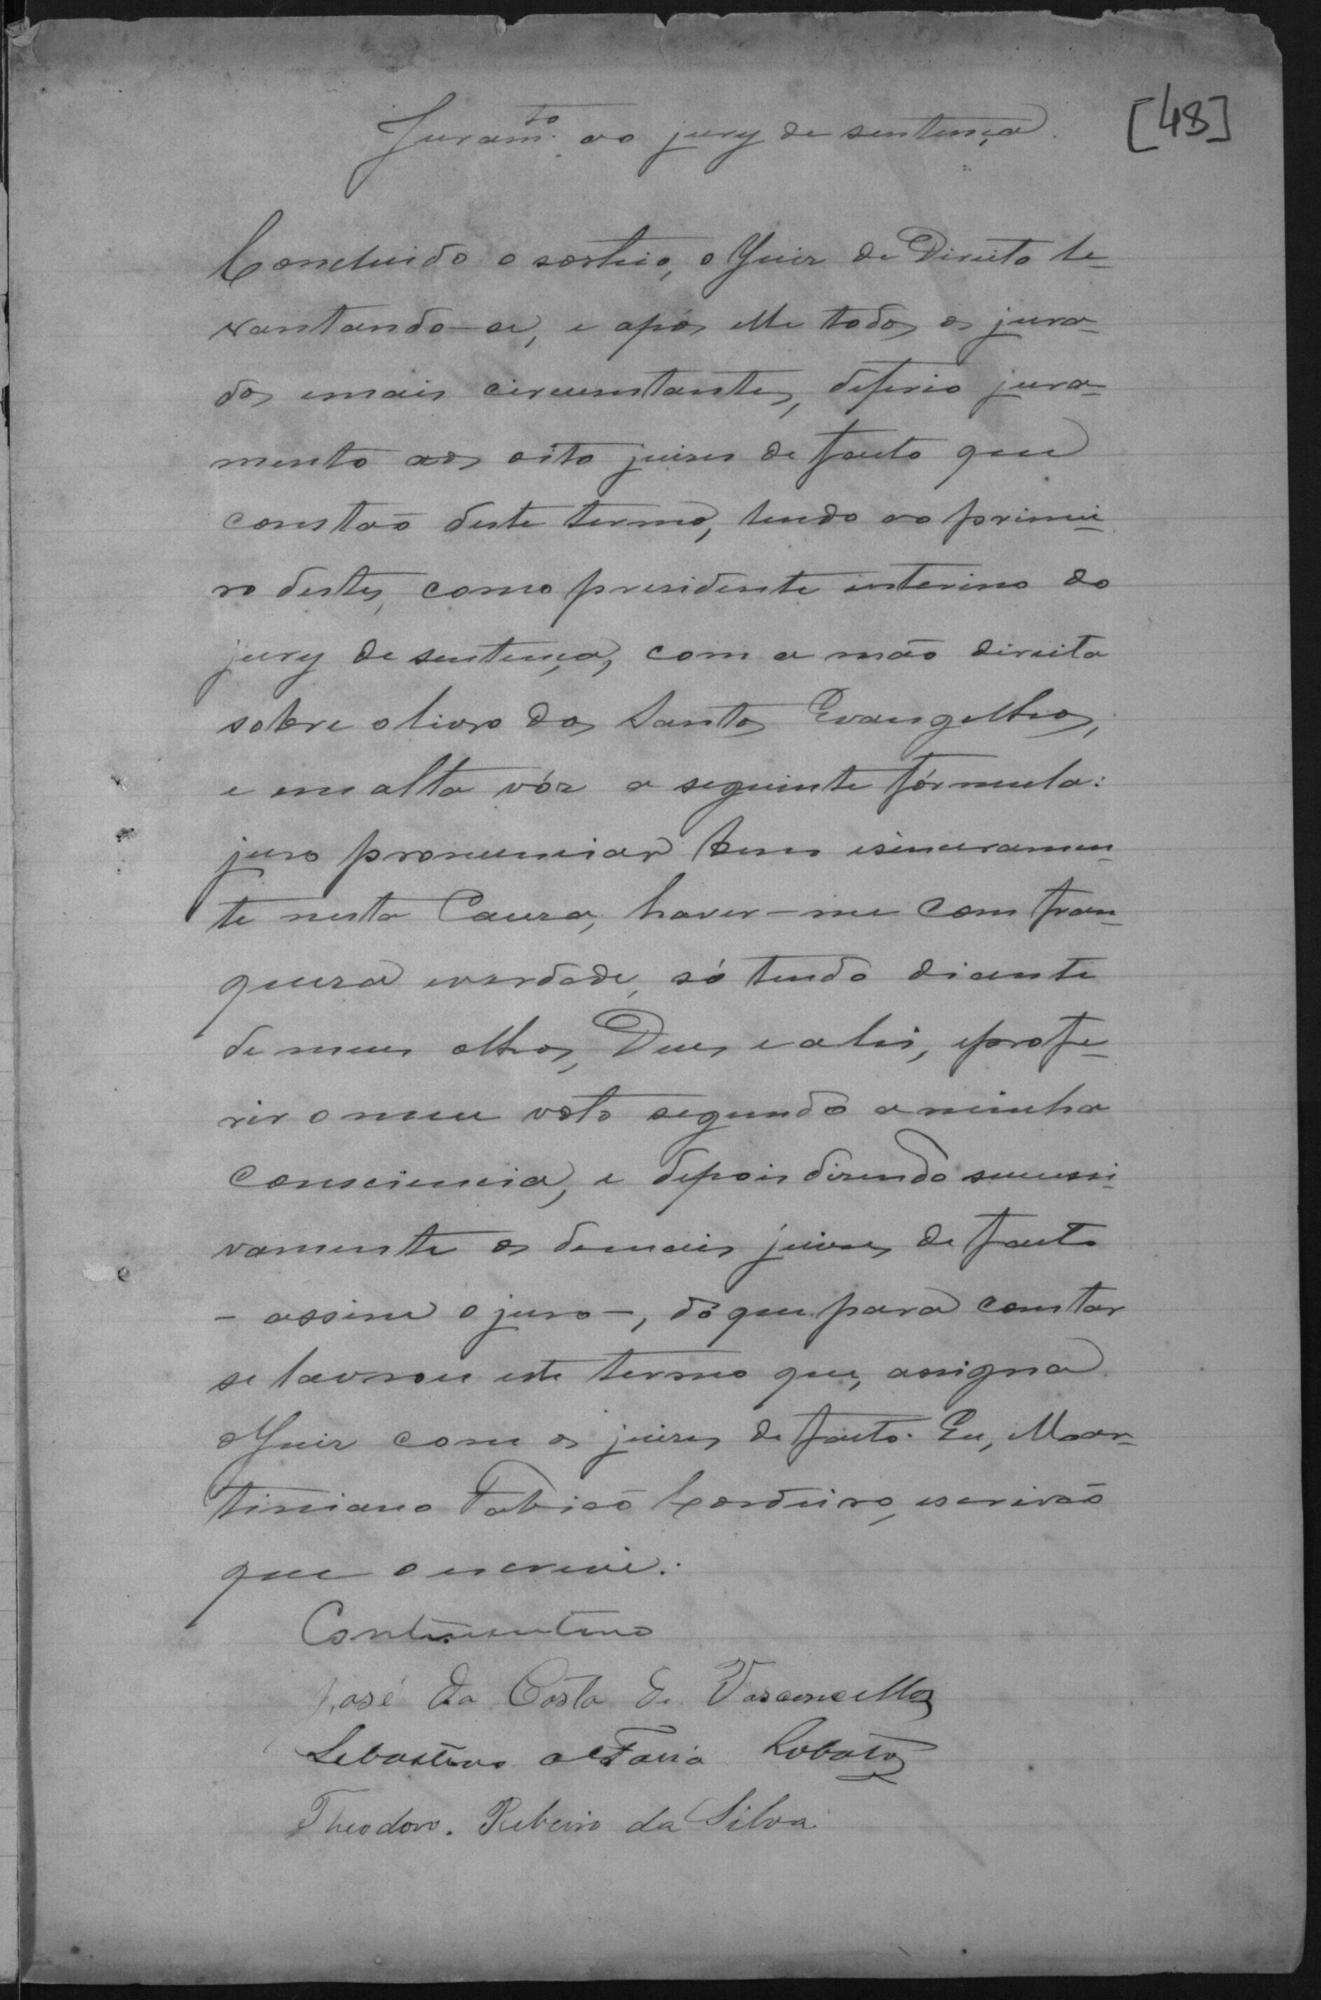 Juram.to ao jury de sentença.
[48]
Concluido o sorteio, o Juiz de Direito le-
vantando-se, e após elle todos os jura-
dos e mais circumstantes, deferio jura-
mento aos oito juises de facto que
constão deste termo, lendo ao primei-
ro destes, como presidente interino do
jury de sentença, com a mão direita
sobre o livro dos Santos Evangelhos,
e em alta vóz a seguinte fórmula:
juro pronunciar bem e sinceramen-
te nesta Causa, haver-me com fran-
quesa e verdade, só tendo diante
de meus olhos, Deus e a lei, e profe-
rir o meu voto segundo a minha
consciencia, e depois disendo successi-
vamente os demais juises de facto
- assim o juro -, do que para constar
se lavrou este termo que, assigna
o Juiz com os juises de facto. Eu, Mar-
tiniano Fabião Cordeiro, escrivão
que o escrevi.
José da Costa de Vasconcellos
Sebastião de Faria Lobato
Theodoro. Ribeiro da Silva